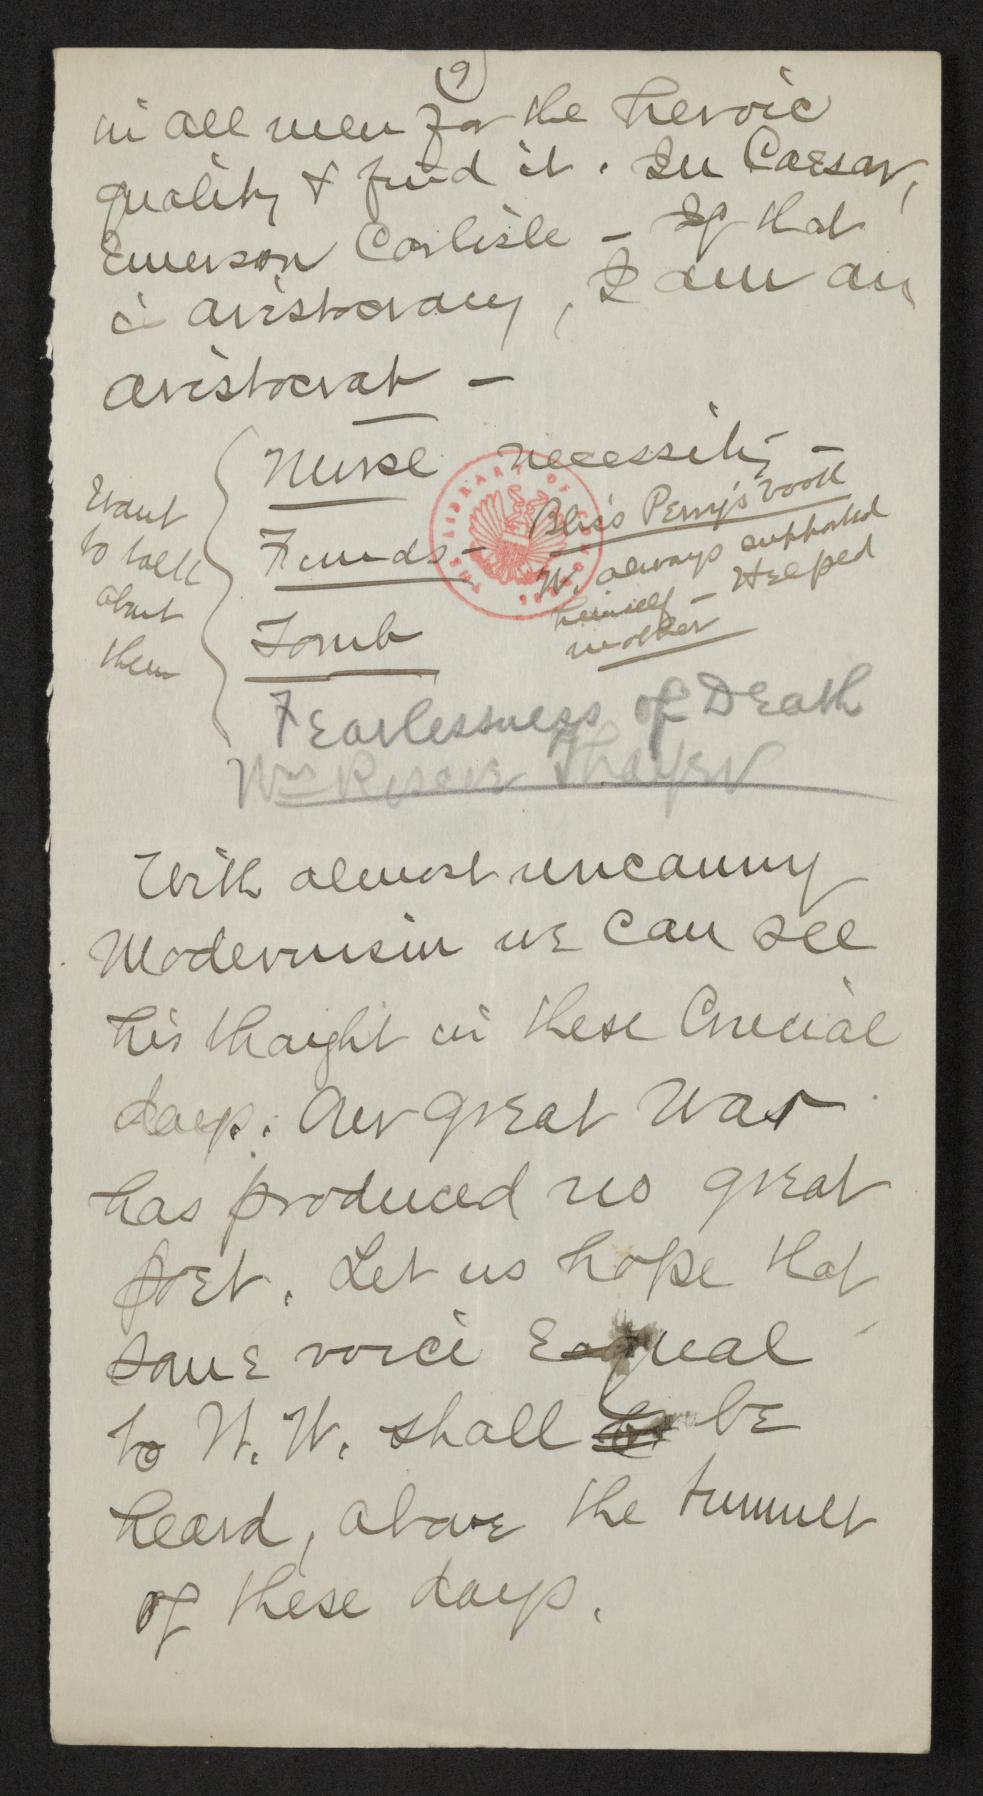 (9)
in all men for the heroic
quality & find it. In Caesar,
Emerson Carlisle – If that
is aristocracy, I am an
aristocrat –
Want
to talk
about
them
Nurse necessity –
Funds –
Bliss Perry's book
W. always supported
himself – Helped
mother
Tomb
Fearlessness of Death
Wm Roscoe Thayer
With almost uncanny
Modernism we can see
his thought in these Crucial
days. Our great War
has produced no great
poet. Let us hope that
some voice Equal
to W. W. shall be
heard, above the tumult
of these days.
THE LIBRARY OF CONGRESS